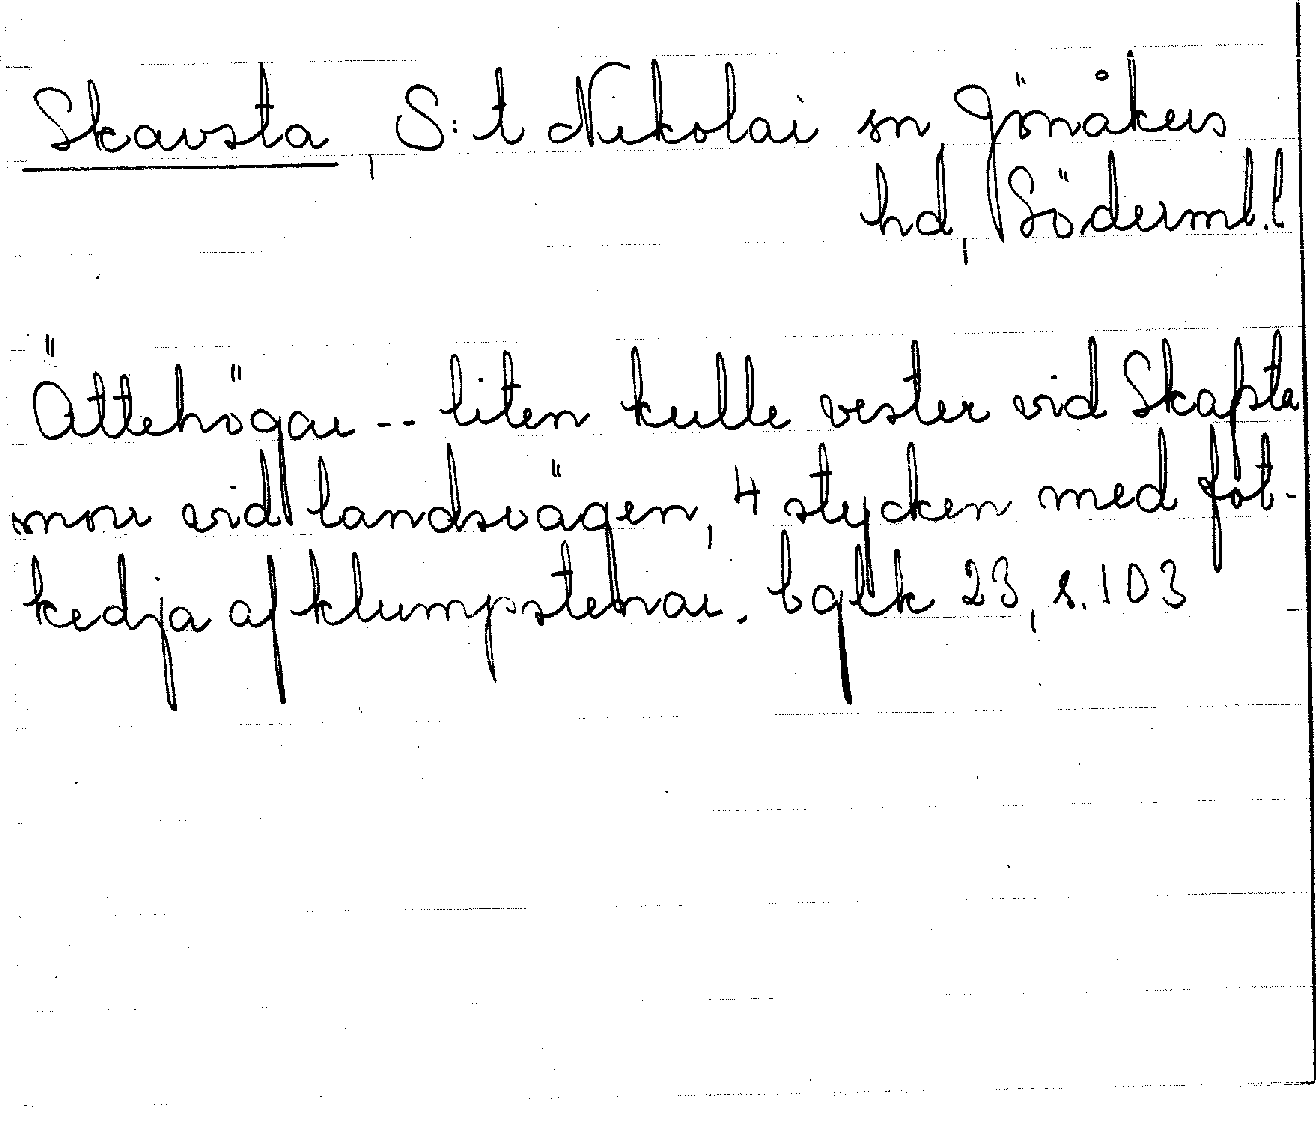 Skavsta, S:t Nikolai sn, Jönåkers
hd, Söderml. l
Ättehögar -- liten kulle vester vid Skapta
mon vid landsvägen, 4 stycken med fot-
kedja af klumpstenar. bglk 23, s. 103